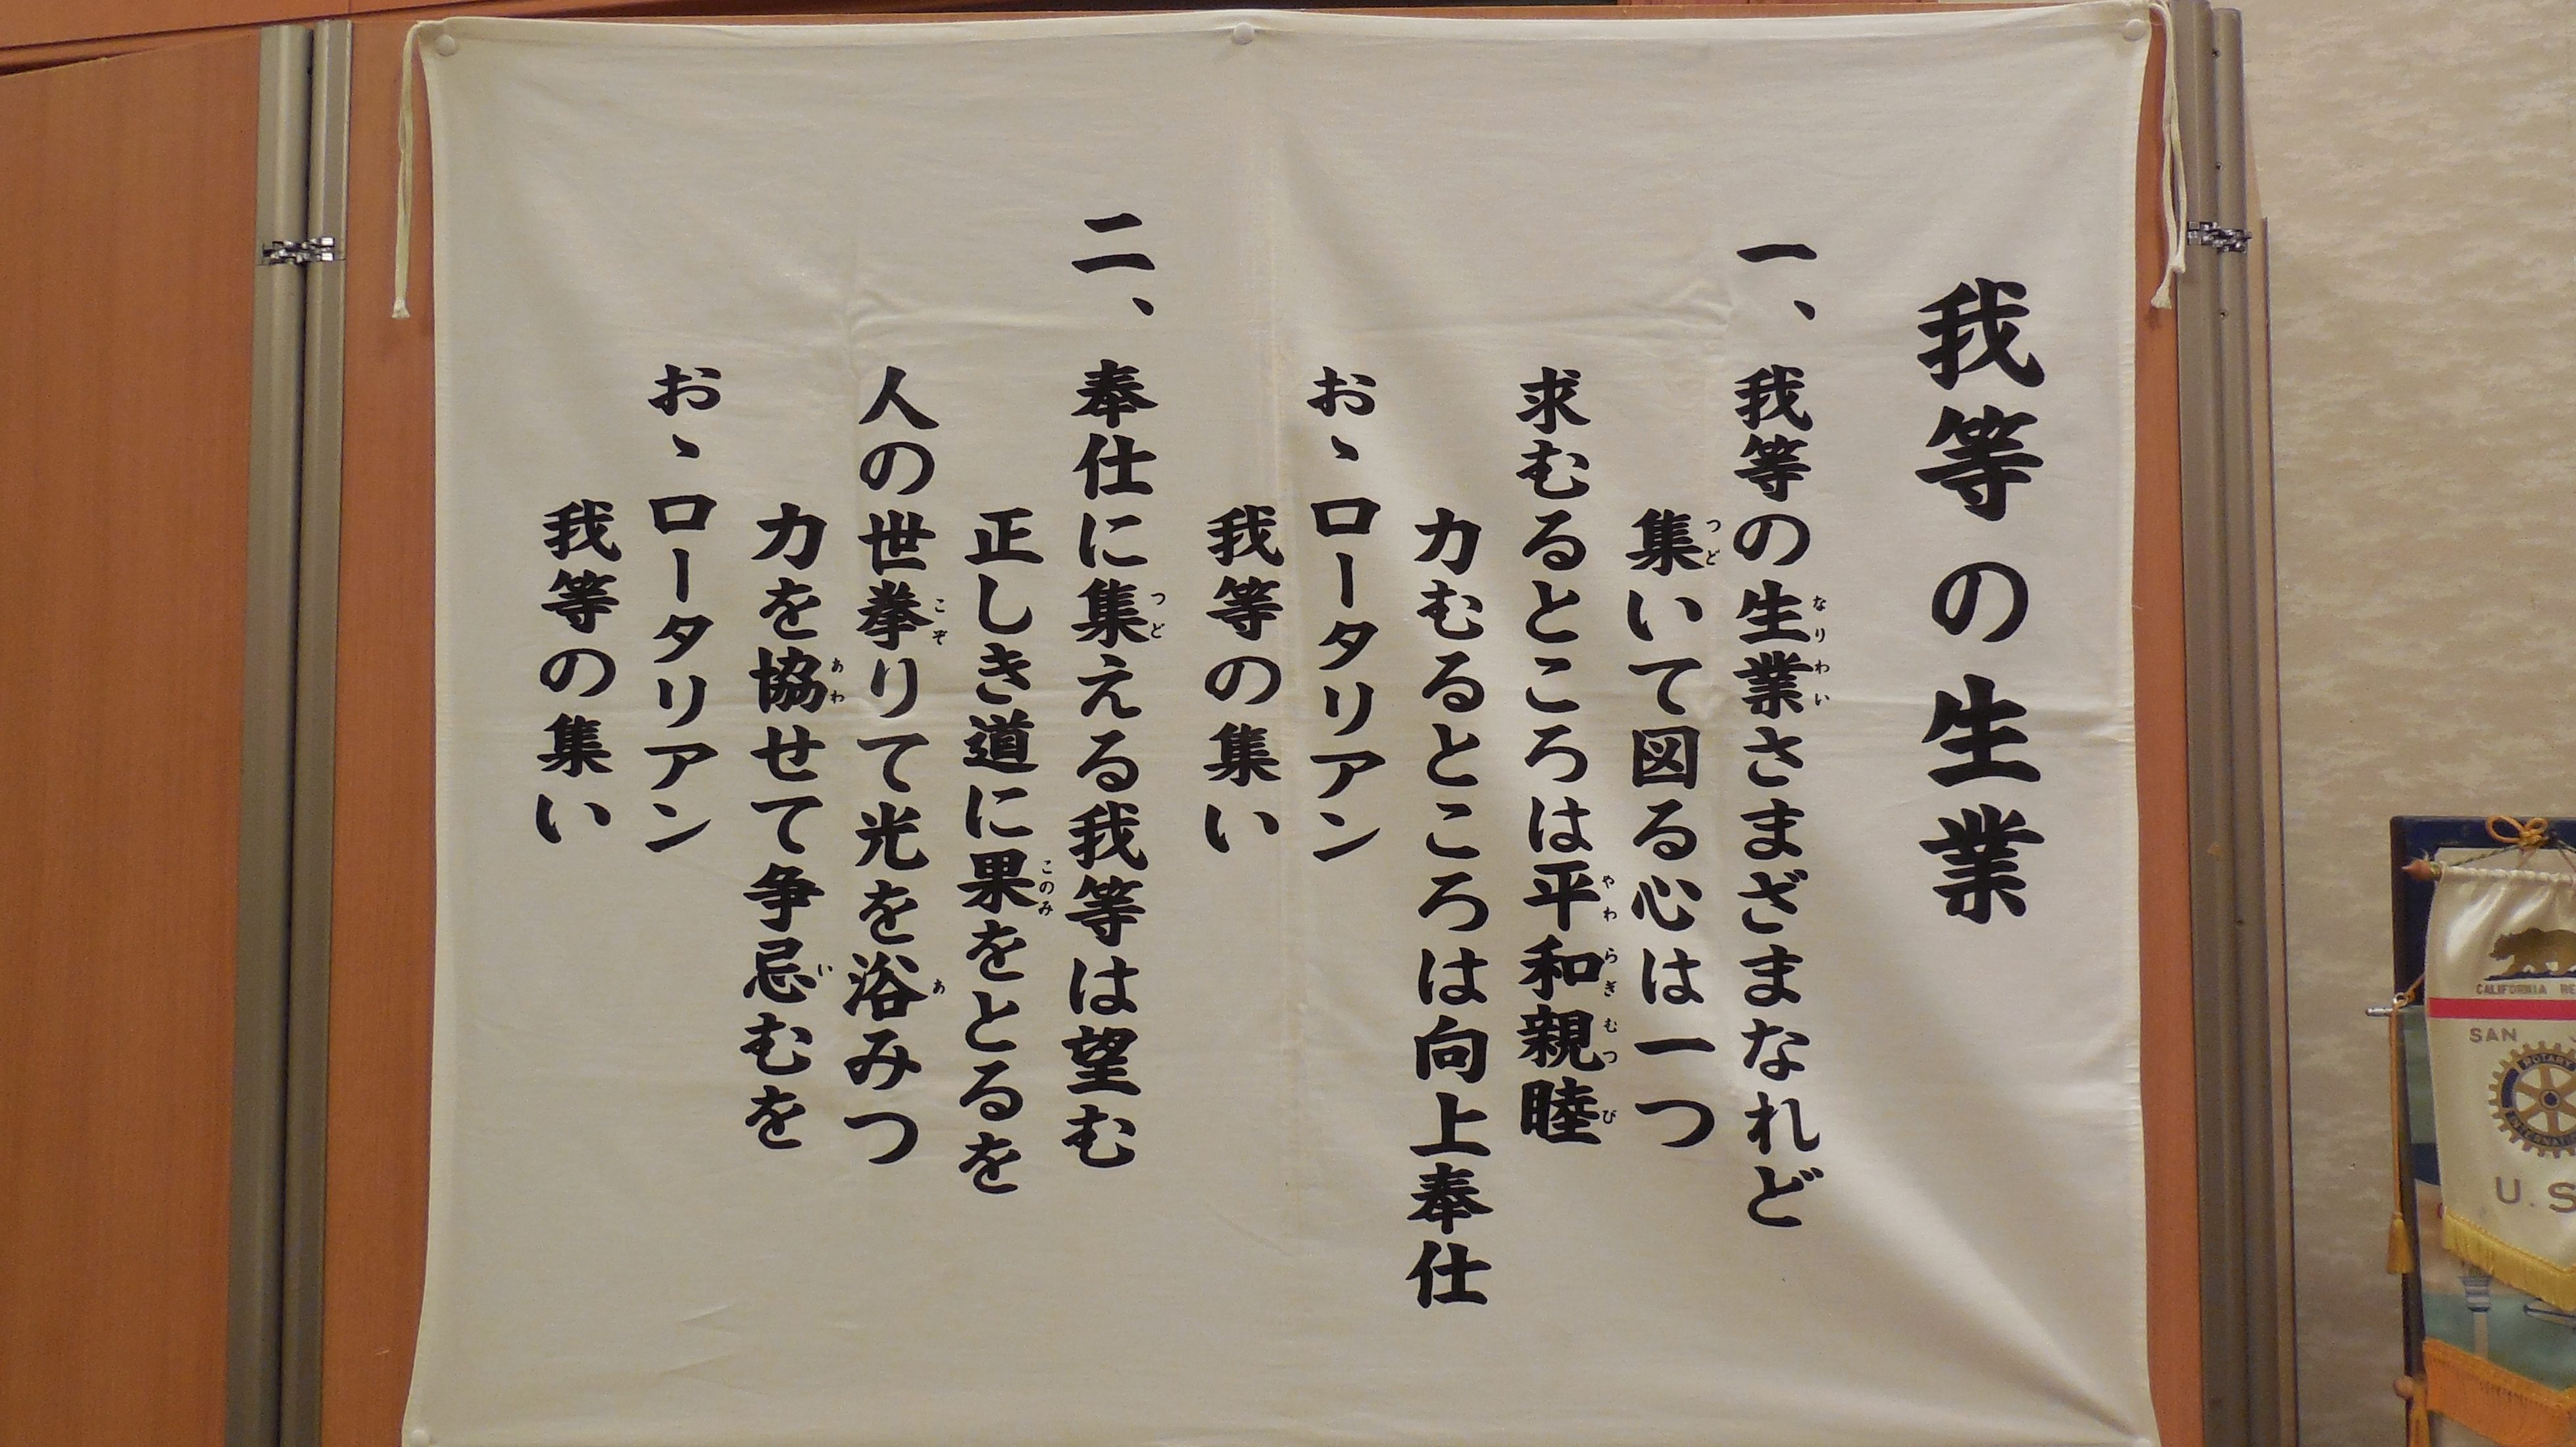 我等の生業
一、我等の生業さまざまなれど
集いて図る心は一つ
求むるところは平和親睦
力むるところは向上奉仕
おゝロータリアン
我等の集い
二、奉仕に集える我等は望む
正しき道に果をとるを
人の世挙りて光を浴みつ
力を協せて争忌むを
おゝロータリアン
我等の集い
CALIFORNIA
SAN
ROTARY
U.S